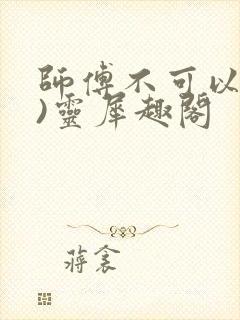 師傅不可以
)靈犀趣閣
蔣衾